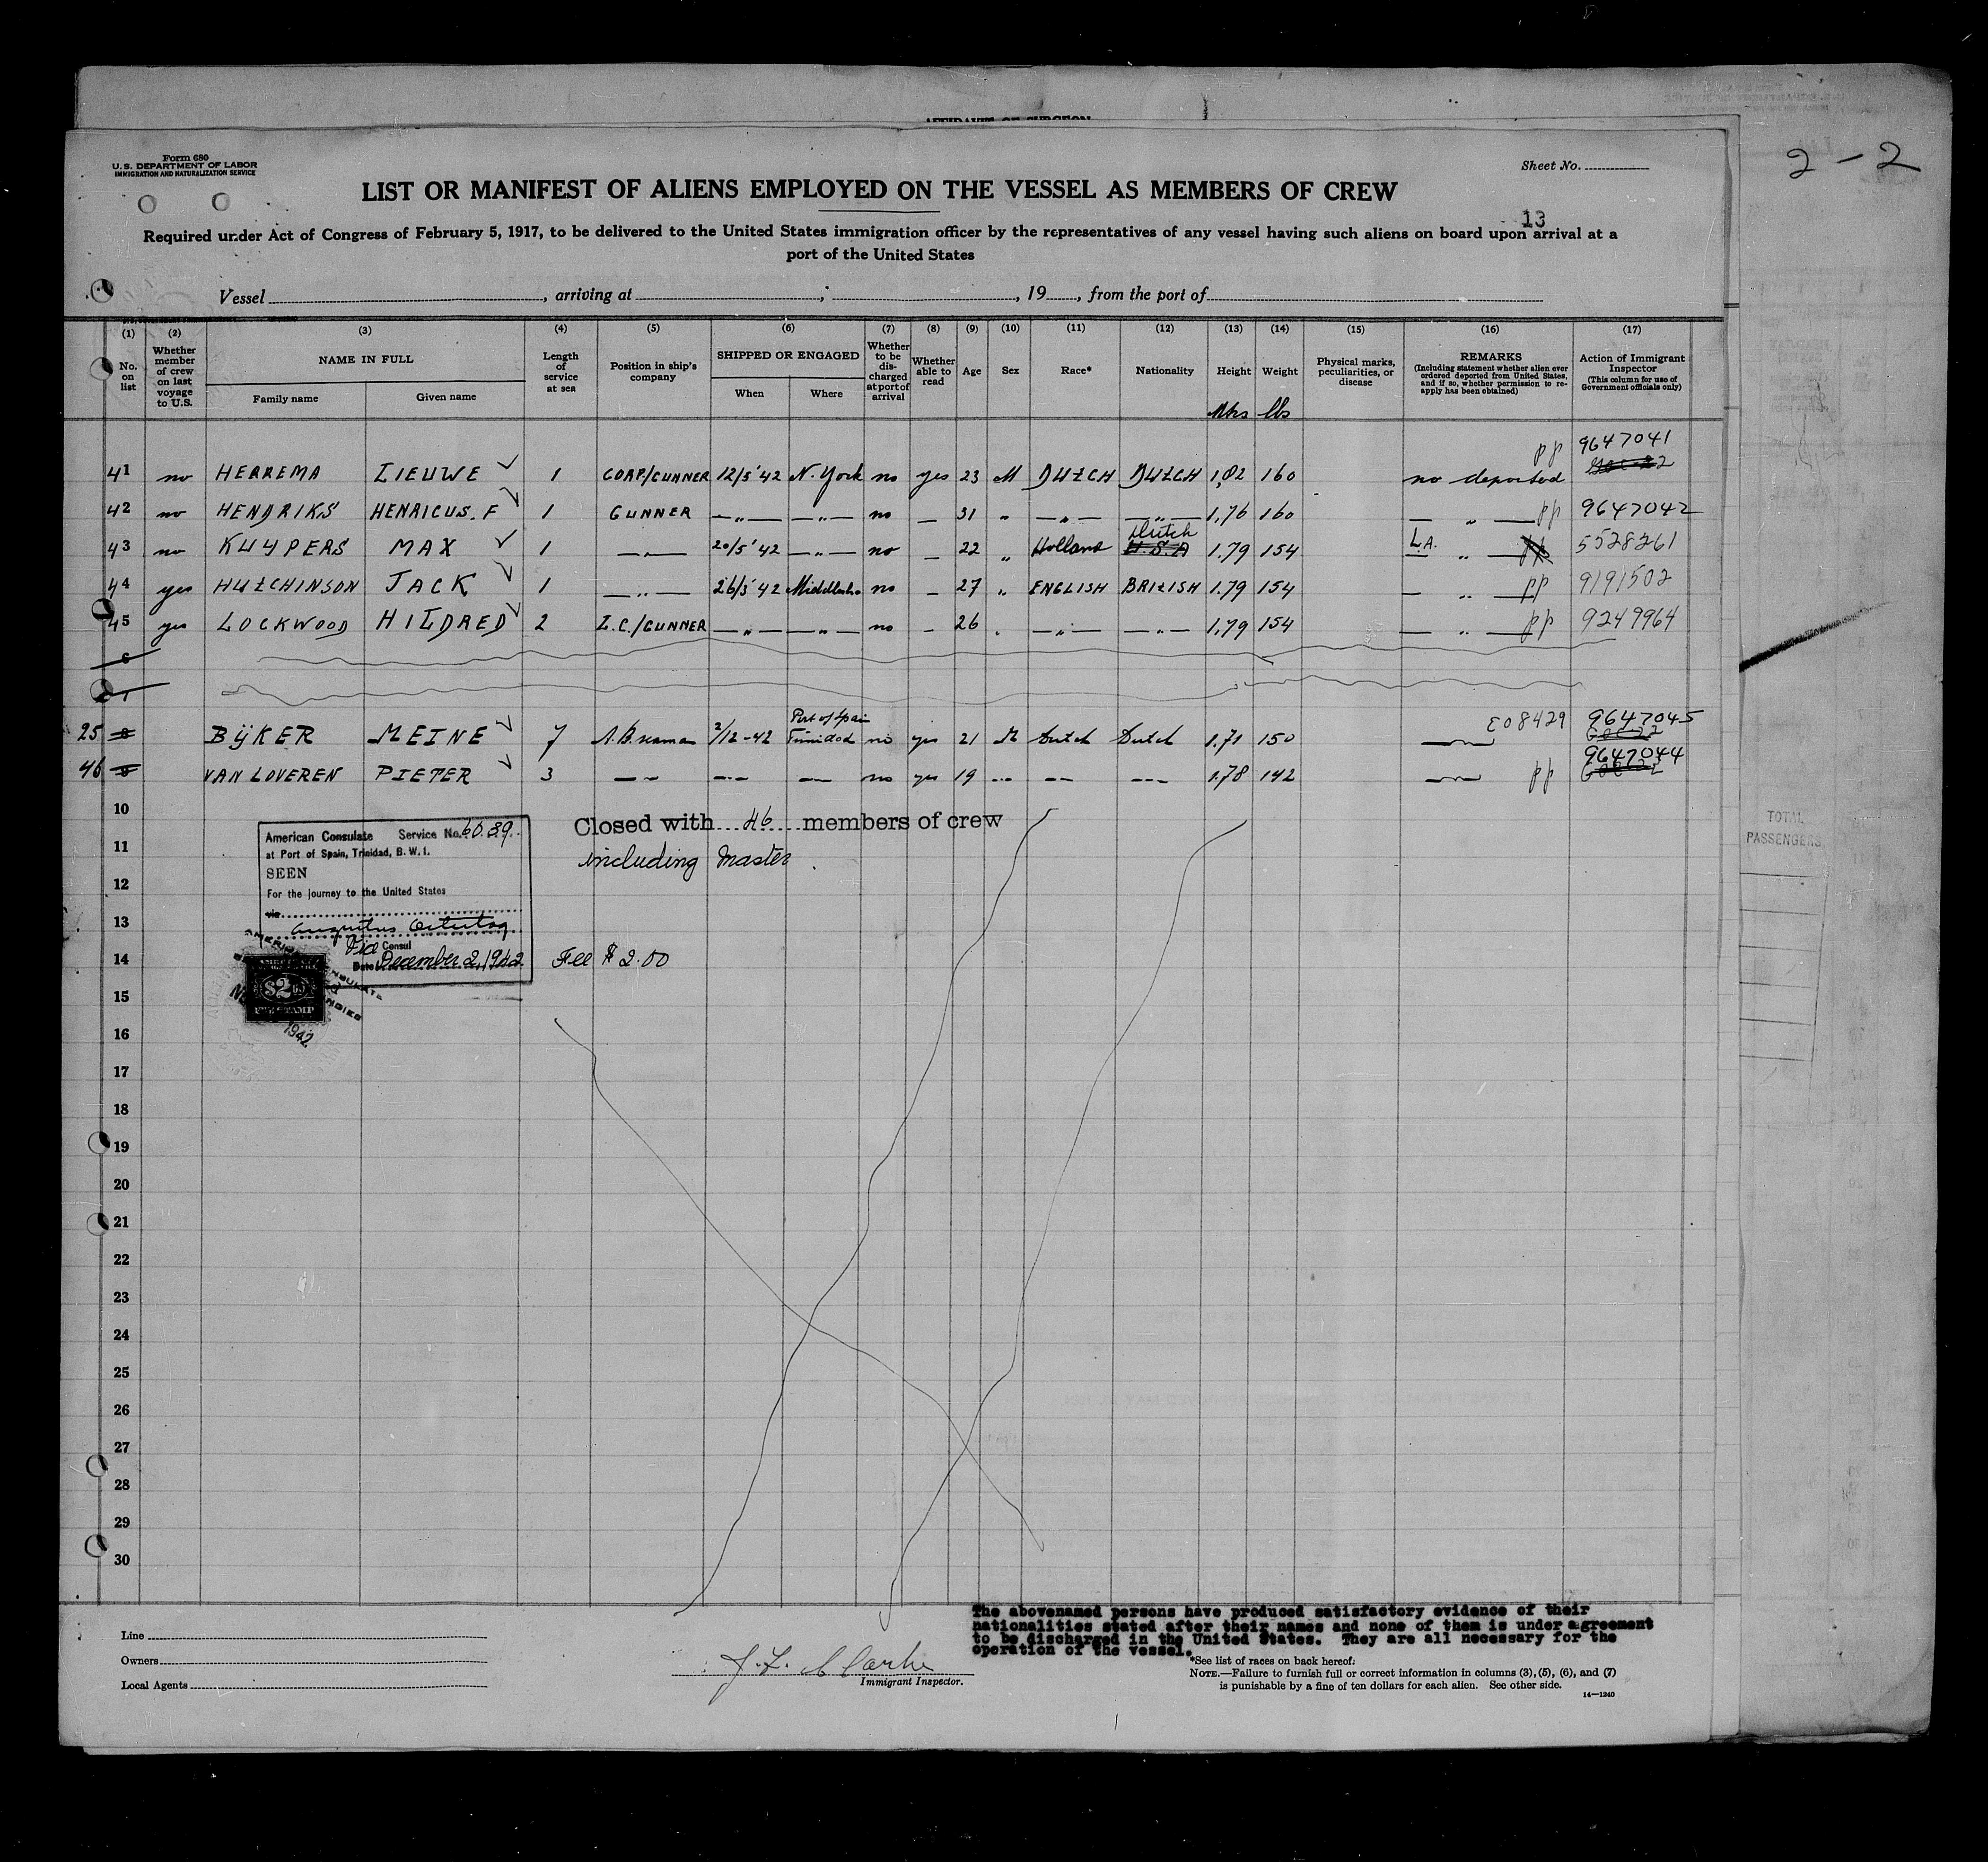 AFFIDAVIT OF SURGEON
2-2
Form 680
U. S. DEPARTMENT OF LABOR
IMMIGRATION AND NATURALIZATION SERVICE
Sheet No.
LIST OR MANIFEST OF ALIENS EMPLOYED ON THE VESSEL AS MEMBERS OF CREW
13
Required under Act of Congress of February 5, 1917, to be delivered to the United States immigration officer by the representatives of any vessel having such aliens on board upon arrival at a
port of the United States
Vessel , arriving at , , 19 , from the port of
(1) (2) (3) (4) (5) (6) (7) (8) (9) (10) (11) (12) (13) (14) (15) (16) (17)
No. on list
Whether member of crew on last voyage to U.S.
NAME IN FULL
Family name Given name
Length of service at sea
Position in ship's company
SHIPPED OR ENGAGED
When Where
Whether to be discharged at port of arrival
Whether able to read
Age
Sex
Race*
Nationality
Height Mtrs
Weight lbs
Physical marks, peculiarities, or disease
REMARKS
(Including statement whether alien ever ordered deported from United States, and if so, whether permission to reapply has been obtained)
Action of Immigrant Inspector
(This column for use of Government officials only)
41 no HERREMA LIEUWE 1 CORP/GUNNER 12/5 '42 N. York no yes 23 M DUTCH DUTCH 1,82 160 no deported pp 9647041
42 no HENDRIKS HENRICUS. F 1 GUNNER —„— —„— no — 31 „ —„— —„— 1,76 160 — „ — pp 9647042
43 no KUYPERS MAX 1 —„— 20/5 '42 —„— no — 22 „ Holland U.S.A Dutch 1.79 154 L.A. „ — pp 5528261
44 yes HUTCHINSON JACK 1 —„— 26/3 '42 no — 27 „ ENGLISH BRITISH 1.79 154 — „ — pp 9191502
45 yes LOCKWOOD HILDRED 2 L.C./GUNNER —„— —„— no — 26 „ —„— —„— 1,79 154 — „ — pp 9249964
6
7
25 8 BIJKER MEINE 7 A.B. seaman 2/12-42 Port of Spain Trinidad no yes 21 M Dutch Dutch 1.71 150 E08429 9647045
46 9 VAN LOVEREN PIETER 3 —— —— —— no yes 19 —— —— —— 1.78 142 pp 9647044
10
Closed with 46 members of crew
including Master
American Consulate Service No. 6089
at Port of Spain, Trinidad, B. W. I.
SEEN
For the journey to the United States
via
Vice Consul
Date December 2, 1942
Fee $ 2.00
$2
FEE STAMP
1942
11
12
13
14
15
16
17
18
19
20
21
22
23
24
25
26
27
28
29
30
TOTAL
PASSENGERS
The abovenamed persons have produced satisfactory evidence of their
nationalities stated after their names and none of them is under agreement
to be discharged in the United States. They are all necessary for the
operation of the vessel.
Line
Owners
Local Agents
J. L. Clarke
Immigrant Inspector.
*See list of races on back hereof.
NOTE.—Failure to furnish full or correct information in columns (3), (5), (6), and (7)
is punishable by a fine of ten dollars for each alien. See other side.
14—1240